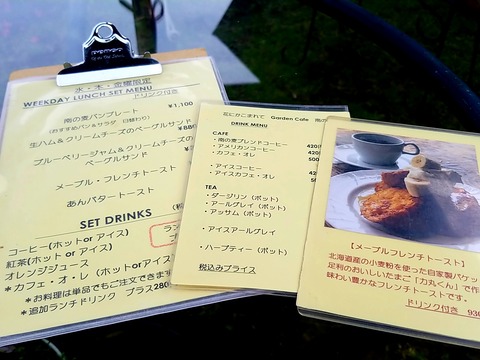 水・木・金曜限定
WEEKDAY LUNCH SET MENU
ドリンク付き
南の麦パンプレート
¥1,100
(おすすめパン&サラダ 日替わり)
生ハム&クリームチーズのベーグルサンド
ブルーベリージャム&クリームチーズの
ベーグルサンド
メープル・フレンチトースト
あんバタートースト
SET DRINKS
コーヒー(ホットor アイス)
紅茶(ホット or アイス)
オレンジジュース
*カフェ・オ・レ(ホットorアイス
*お料理は単品でもご注文できます
*追加ランチドリンク プラス280
花にかこまれて Garden Cafe 南の
DRINK MENU
CAFE
・南の麦ブレンドコーヒー 420
・アメリカンコーヒー 420
・カフェ・オレ 500
・アイスコーヒー
・アイスカフェ・オレ
TEA
・ダージリン(ポット)
・アールグレイ(ポット)
・アッサム(ポット)
・アイスアールグレイ
・ハーブティー(ポット)
税込みプライス
【メープルフレンチトースト】
北海道産の小麦粉を使った自家製バケッ
足利のおいしいたまご「力丸くん」で作
味わい豊かなフレンチトーストです。
ドリンク付き 930